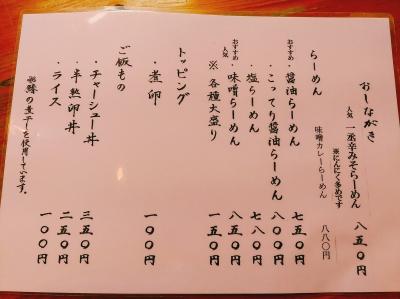 おしながき
人気 一丞辛みそらーめん 八五〇円
※にんにく多めです
味噌カレーらーめん 八八〇円
らーめん
おすすめ ・醤油らーめん 七五〇円
・こってり醤油らーめん 八〇〇円
・塩らーめん 七八〇円
おすすめ 人気 ・味噌らーめん 八五〇円
※各種大盛り 一五〇円
トッピング
・煮卵 一〇〇円
ご飯もの
・チャーシュー丼 三五〇円
・半熟卵丼 二五〇円
・ライス 一〇〇円
の煮干しを使用しています。